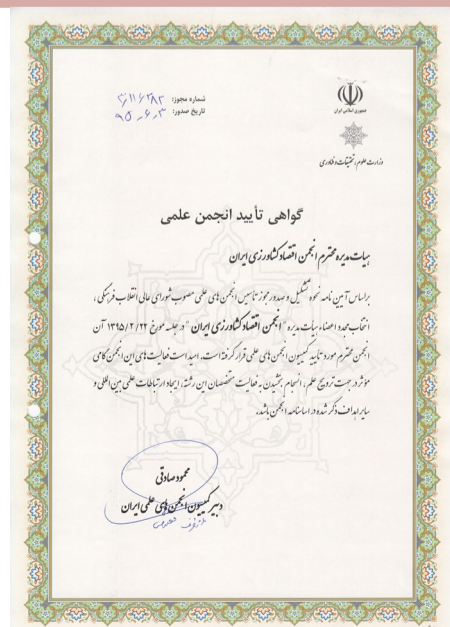 شماره مجوز: ۳/۱۱۶۲۸۲
تاریخ صدور: ۹۵-۶-۳
جمهوری اسلامی ایران
وزارت علوم، تحقیقات و فناوری
گواهی تأیید انجمن علمی
هیات مدیره محترم انجمن اقتصاد کشاورزی ایران
براساس آیین نامه نحوه تشکیل و صدور مجوز تاسیس انجمن های علمی مصوب شورای عالی انقلاب فرهنگی،
انتخاب مجدد اعضاء هیات مدیره "انجمن اقتصاد کشاورزی ایران" در جلسه مورخ ۱۳۹۵/۲/۲۲ آن
انجمن محترم مورد تایید کمیسیون انجمن های علمی قرار گرفته است. امید است فعالیت های این انجمن گامی
مؤثر در جهت ترویج علم، انسجام بخشیدن به فعالیت متخصصان این رشته، ایجاد ارتباطات علمی بین المللی و
سایر اهداف ذکر شده در اساسنامه انجمن باشد.
محمود صادقی
دبیر کمیسیون انجمن های علمی ایران